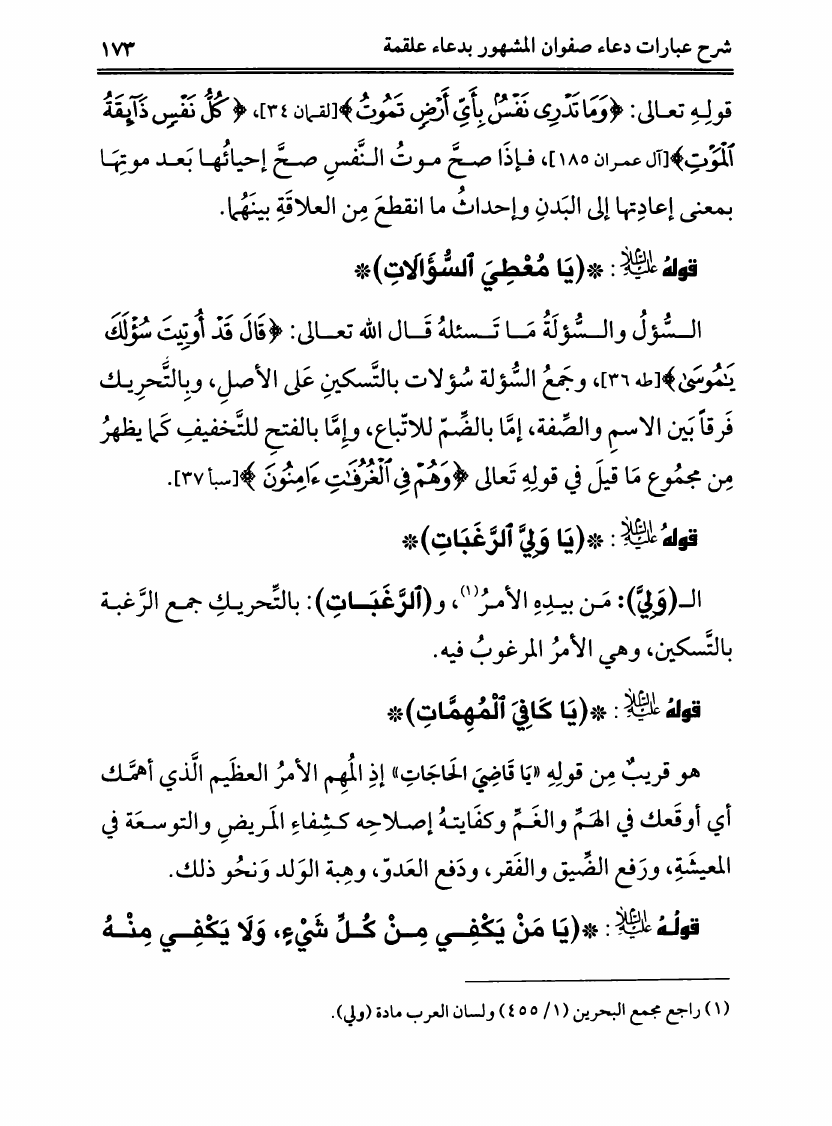 شرح عبارات دعاء صفوان المشهور بدعاء علقمة ١٧٣
قولِهِ تعالى: ﴿وَمَا تَدْرِى نَفْسٌۢ بِأَىِّ أَرْضٍ تَمُوتُ﴾[لقمان ٣٤]، ﴿كُلُّ نَفْسٍ ذَآئِقَةُ
ٱلْمَوْتِ﴾[آل عمران ١٨٥]، فإذَا صحَّ موتُ النَّفسِ صحَّ إحيائُها بَعد موتِهَا
بمعنى إعادِتها إلى البَدنِ وإحداثُ ما انقطعَ مِن العلاقَةِ بينَهُما.
قولهُ عَلَيْهِ السَّلَامُ: *(يَا مُعْطِيَ ٱلسُّؤَالَاتِ)*
السُّؤلُ والسُّؤلَةُ مَا تَسئلهُ قَال الله تعالى: ﴿قَالَ قَدْ أُوتِيتَ سُؤْلَكَ
يَٰمُوسَىٰ﴾[طه ٣٦]، وجَمعُ السُّؤلة سُؤلات بالتَّسكينِ عَلى الأصلِ، وبِالتَّحرِيك
فَرقاً بَين الاسمِ والصِّفة، إمَّا بالضِّمّ للاتّباع، وإمَّا بالفتحِ للتَّخفيفِ كَما يظهرُ
مِن مجمُوع مَا قيلَ في قولِهِ تَعالى ﴿وَهُمْ فِى ٱلْغُرُفَٰتِ ءَامِنُونَ﴾[سبأ ٣٧].
قولهُ عَلَيْهِ السَّلَامُ: *(يَا وَلِيَّ ٱلرَّغَبَاتِ)*
الـ(وَلِيَّ): مَن بيدِهِ الأمرُ(١)، و(ٱلرَّغَبَاتِ): بالتِّحريكِ جمع الرَّغبة
بالتَّسكين، وهي الأمرُ المرغوبُ فيه.
قولهُ عَلَيْهِ السَّلَامُ: *(يَا كَافِيَ ٱلْمُهِمَّاتِ)*
هو قريبٌ مِن قولِهِ «يَا قَاضِيَ الحَاجَاتِ» إذِ المُهِم الأمرُ العظَيم الَّذي أهمَّك
أي أوقَعك في الهَمِّ والغَمِّ وكفَايتهُ إصلاحِه كشِفاءِ المَريضِ والتوسعَة في
المعيشَةِ، ورَفع الضِّيق والفَقر، ودَفع العَدوّ، وهِبة الوَلد وَنحُو ذلك.
قولُهُ عَلَيْهِ السَّلَامُ: *(يَا مَنْ يَكْفِي مِنْ كُلِّ شَيْءٍ، وَلَا يَكْفِي مِنْهُ
(١) راجع مجمع البحرين (١/ ٤٥٥) ولسان العرب مادة (ولي).